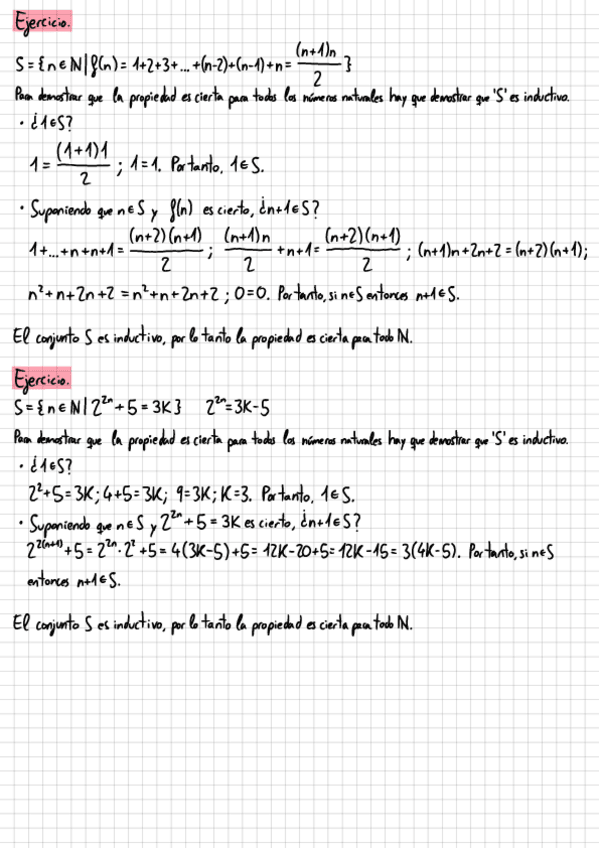 Ejercicio.
S = {n ∈ ℕ | f(n) = 1+2+3+...+(n-2)+(n-1)+n = (n+1)n / 2}
Para demostrar que la propiedad es cierta para todos los números naturales hay que demostrar que 'S' es inductivo.
• ¿1∈S?
1 = (1+1)1 / 2 ; 1=1. Por tanto, 1∈S.
• Suponiendo que n∈S y f(n) es cierto, ¿n+1∈S?
1+...+n+n+1 = (n+2)(n+1) / 2 ; (n+1)n / 2 + n+1 = (n+2)(n+1) / 2 ; (n+1)n+2n+2 = (n+2)(n+1);
n²+n+2n+2 = n²+n+2n+2 ; 0=0. Por tanto, si n∈S entonces n+1∈S.
El conjunto S es inductivo, por lo tanto la propiedad es cierta para todo ℕ.
Ejercicio.
S = {n ∈ ℕ | 2²ⁿ + 5 = 3K} 2²ⁿ = 3K-5
Para demostrar que la propiedad es cierta para todos los números naturales hay que demostrar que 'S' es inductivo.
• ¿1∈S?
2²+5 = 3K; 4+5 = 3K; 9 = 3K; K=3. Por tanto, 1∈S.
• Suponiendo que n∈S y 2²ⁿ + 5 = 3K es cierto, ¿n+1∈S?
2²⁽ⁿ⁺¹⁾+5 = 2²ⁿ·2²+5 = 4(3K-5)+5 = 12K-20+5 = 12K-15 = 3(4K-5). Por tanto, si n∈S
entonces n+1∈S.
El conjunto S es inductivo, por lo tanto la propiedad es cierta para todo ℕ.